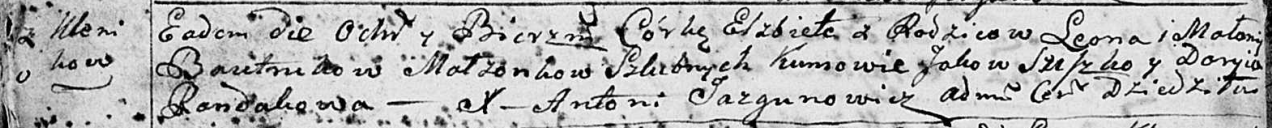 z Kleni
kow
Eadem die Ochrz y Bierzm Córkę Elżbietę z Rodzicow Leona i Małanij
Bautrukow Małżonkow Szlubnych Kumowie Jakow Szyszko y Daryia
Randakowa — X — Antoni Jazgunowicz adm Cer Dziedzi